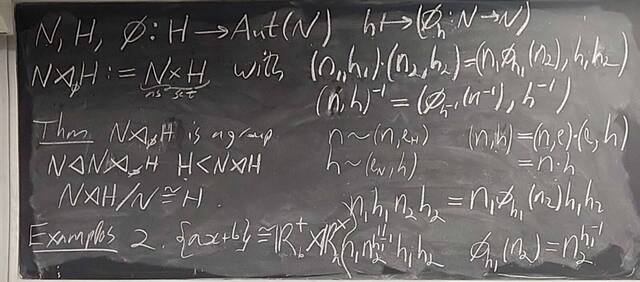 N, H, ∅: H → Aut(N) h ↦ (∅_h: N → N)
N⋊_∅H := N × H with (n₁, h₁)·(n₂, h₂) = (n₁∅_{h₁}(n₂), h₁h₂)
as set (n, h)⁻¹ = (∅_{h⁻¹}(n⁻¹), h⁻¹)
Thm N⋊_∅H is a group n ~ (n, e_H) (n, h) = (n, e)·(e, h)
N ◁ N⋊_∅H H < N⋊H h ~ (e_N, h) = n·h
N⋊H/N ≅ H. n₁h₁n₂h₂ = n₁∅_{h₁}(n₂)h₁h₂
Examples 2. {ax+b} ≅ ℝ_b^+ ⋊ ℝ^× n₁n₂^{h₁⁻¹}h₁h₂ ∅_{h₁}(n₂) = n₂^{h₁⁻¹}